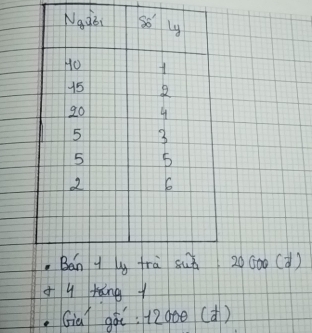 Người Số ly
10 1
15 2
20 4
5 3
5 5
2 6
• Bán 1 ly trà sữa : 20 000 (đ)
+ 4 tặng 1
• Giá gốc : 12000 (đ)